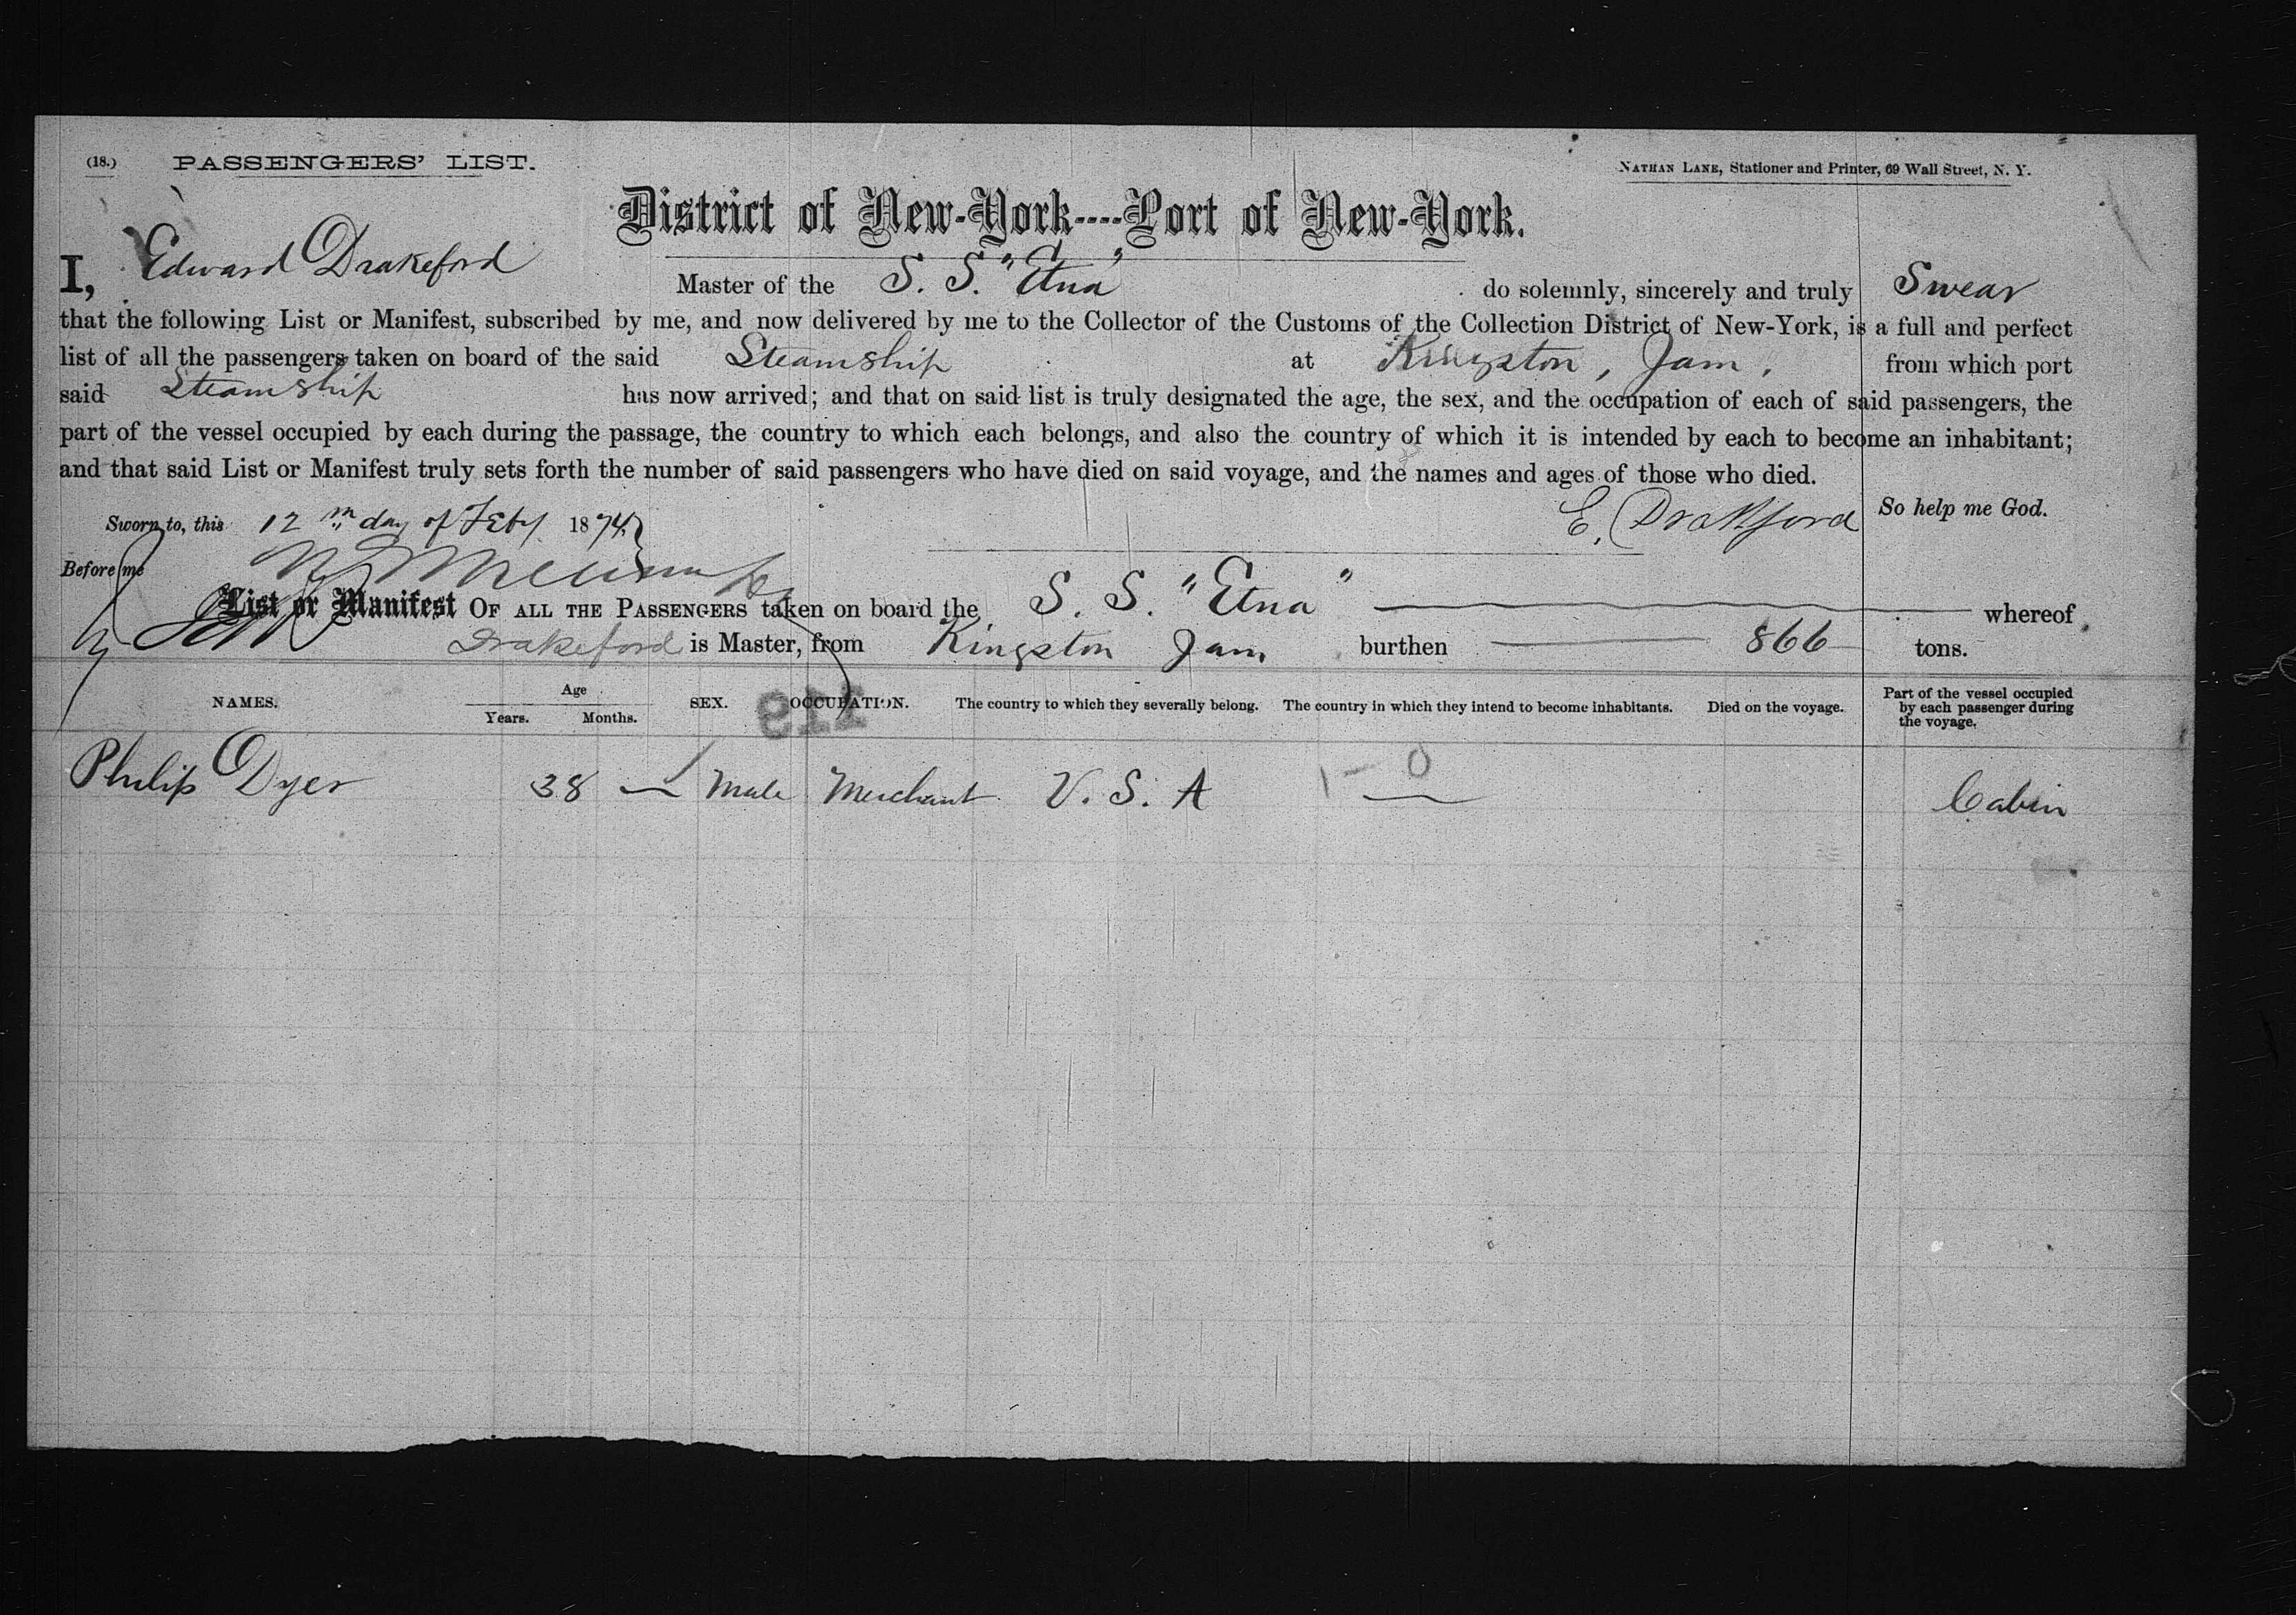 (18.) PASSENGERS' LIST.
NATHAN LANE, Stationer and Printer, 69 Wall Street, N. Y.
District of New-York----Port of New-York.
I, Edward Drakeford Master of the S. S. "Etna" do solemnly, sincerely and truly Swear
that the following List or Manifest, subscribed by me, and now delivered by me to the Collector of the Customs of the Collection District of New-York, is a full and perfect
list of all the passengers taken on board of the said Steamship at Kingston, Jam, from which port
said Steamship has now arrived; and that on said list is truly designated the age, the sex, and the occupation of each of said passengers, the
part of the vessel occupied by each during the passage, the country to which each belongs, and also the country of which it is intended by each to become an inhabitant;
and that said List or Manifest truly sets forth the number of said passengers who have died on said voyage, and the names and ages of those who died.
So help me God.
Sworn to, this 12 day of Feby 1874 E. Drakeford
Before me
List or Manifest OF ALL THE PASSENGERS taken on board the S. S. "Etna" whereof
Drakeford is Master, from Kingston Jam burthen 866 tons.
NAMES. Age Years. Months. SEX. OCCUPATION. The country to which they severally belong. The country in which they intend to become inhabitants. Died on the voyage. Part of the vessel occupied by each passenger during the voyage.
Philip Dyer 38 — Male Merchant U. S. A — Cabin
1 - 0